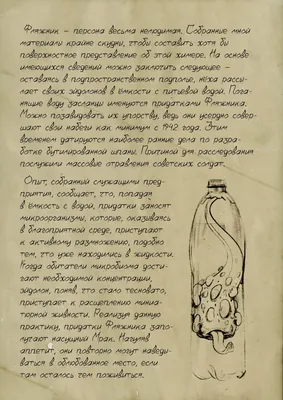 Фляжник – персона весьма нелюдимая. Собранные мной
материалы крайне скудны, чтобы составить хотя бы
поверхностное представление об этой химере. На основе
имеющихся сведений можно заключить следующее –
оставаясь в подпространственном подполье, нёха рассы-
лает своих эйдолонов в ёмкости с питьевой водой. Пога-
нящие воду засланцы именуются придатками Фляжника.
Можно позавидовать их упорству, ведь они усердно совер-
шают свои набеги как минимум с 1942 года. Этим
временем датируются наиболее ранние дела по разра-
ботке бутилированной шпаны. Причиной для расследования
послужили массовые отравления советских солдат.
Опыт, собранный служащими пред-
приятия, сообщает, что, попадая
в ёмкость с водой, придатки заносят
микроорганизмы, которые, оказываясь
в благоприятной среде, приступают
к активному размножению, подобно
тем, что уже находились в жидкости.
Когда обитатели микробиома дости-
гают необходимой концентрации,
эйдолон, поняв, что стало тесновато,
приступает к расщеплению миниа-
тюрной живности. Реализуя данную
практику, придатки Фляжника запо-
лучают насущный Мрак. Нагуляв
аппетит, они повторно могут наведы-
ваться в облюбованное место, если
там осталось чем поживиться.